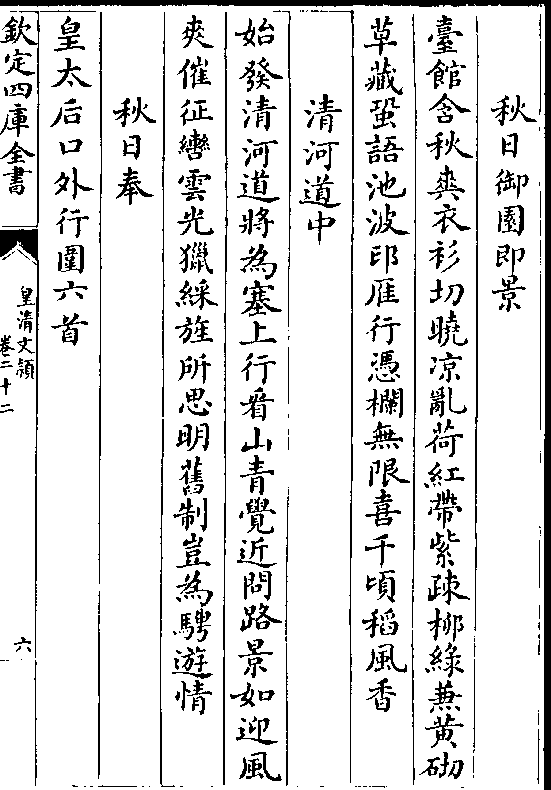 秋日御園即景
臺館含秋爽衣衫切曉凉亂荷紅帶紫疎栁綠蒹黄砌
草藏蛩語池波印雁行憑欄無限喜千頃稻風香
清河道中
始發清河道將為塞上行看山青覺近問路景如迎風
爽催征轡雲光獵綵旌所思明舊制豈為騁遊情
秋日奉
皇太后口外行圍六首
欽定四庫全書
皇清文穎
卷二十二
六